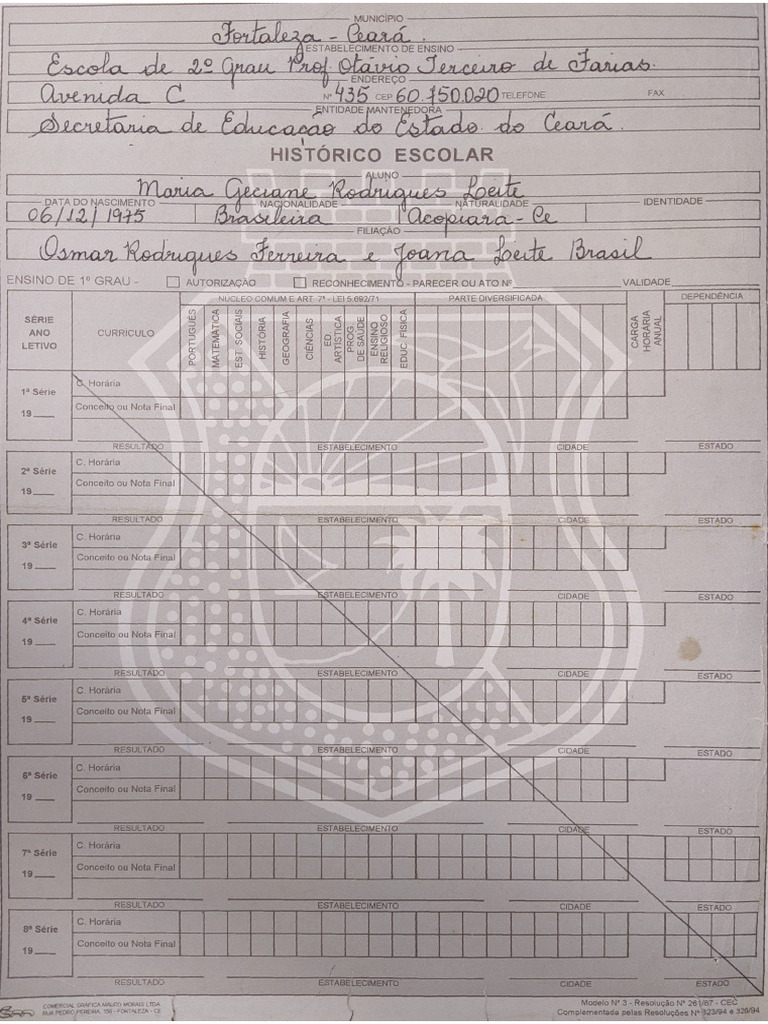 MUNICÍPIO
Fortaleza - Ceará.
ESTABELECIMENTO DE ENSINO
Escola de 2º Grau Prof. Otávio Terceiro de Farias.
ENDEREÇO
Avenida C Nº 435 CEP 60.750.020 TELEFONE FAX
ENTIDADE MANTENEDORA
Secretaria de Educação do Estado do Ceará.
HISTÓRICO ESCOLAR
ALUNO
Maria Geciane Rodrigues Leite
DATA DO NASCIMENTO NACIONALIDADE NATURALIDADE IDENTIDADE
06/12/1975 Brasileira Acopiara - Ce
FILIAÇÃO
Osmar Rodrigues Ferreira e Joana Leite Brasil
ENSINO DE 1º GRAU - AUTORIZAÇÃO RECONHECIMENTO - PARECER OU ATO Nº VALIDADE
SÉRIE ANO LETIVO CURRICULO NÚCLEO COMUM E ART. 7º - LEI 5.692/71 PARTE DIVERSIFICADA CARGA HORÁRIA ANUAL DEPENDÊNCIA
PORTUGUÊS MATEMÁTICA EST. SOCIAIS HISTÓRIA GEOGRAFIA CIÊNCIAS ED. ARTÍSTICA PROG. DE SAÚDE ENSINO RELIGIOSO EDUC. FÍSICA
1ª Série C. Horária
19 Conceito ou Nota Final
RESULTADO ESTABELECIMENTO CIDADE ESTADO
2ª Série C. Horária
19 Conceito ou Nota Final
RESULTADO ESTABELECIMENTO CIDADE ESTADO
3ª Série C. Horária
19 Conceito ou Nota Final
RESULTADO ESTABELECIMENTO CIDADE ESTADO
4ª Série C. Horária
19 Conceito ou Nota Final
RESULTADO ESTABELECIMENTO CIDADE ESTADO
5ª Série C. Horária
19 Conceito ou Nota Final
RESULTADO ESTABELECIMENTO CIDADE ESTADO
6ª Série C. Horária
19 Conceito ou Nota Final
RESULTADO ESTABELECIMENTO CIDADE ESTADO
7ª Série C. Horária
19 Conceito ou Nota Final
RESULTADO ESTABELECIMENTO CIDADE ESTADO
8ª Série C. Horária
19 Conceito ou Nota Final
RESULTADO ESTABELECIMENTO CIDADE ESTADO
COMERCIAL GRÁFICA MAURO MORAIS LTDA. Modelo Nº 3 - Resolução Nº 261/87 - CEC
RUA PEDRO PEREIRA, 150 - FORTALEZA - CE Complementada pelas Resoluções Nº 323/94 e 326/94